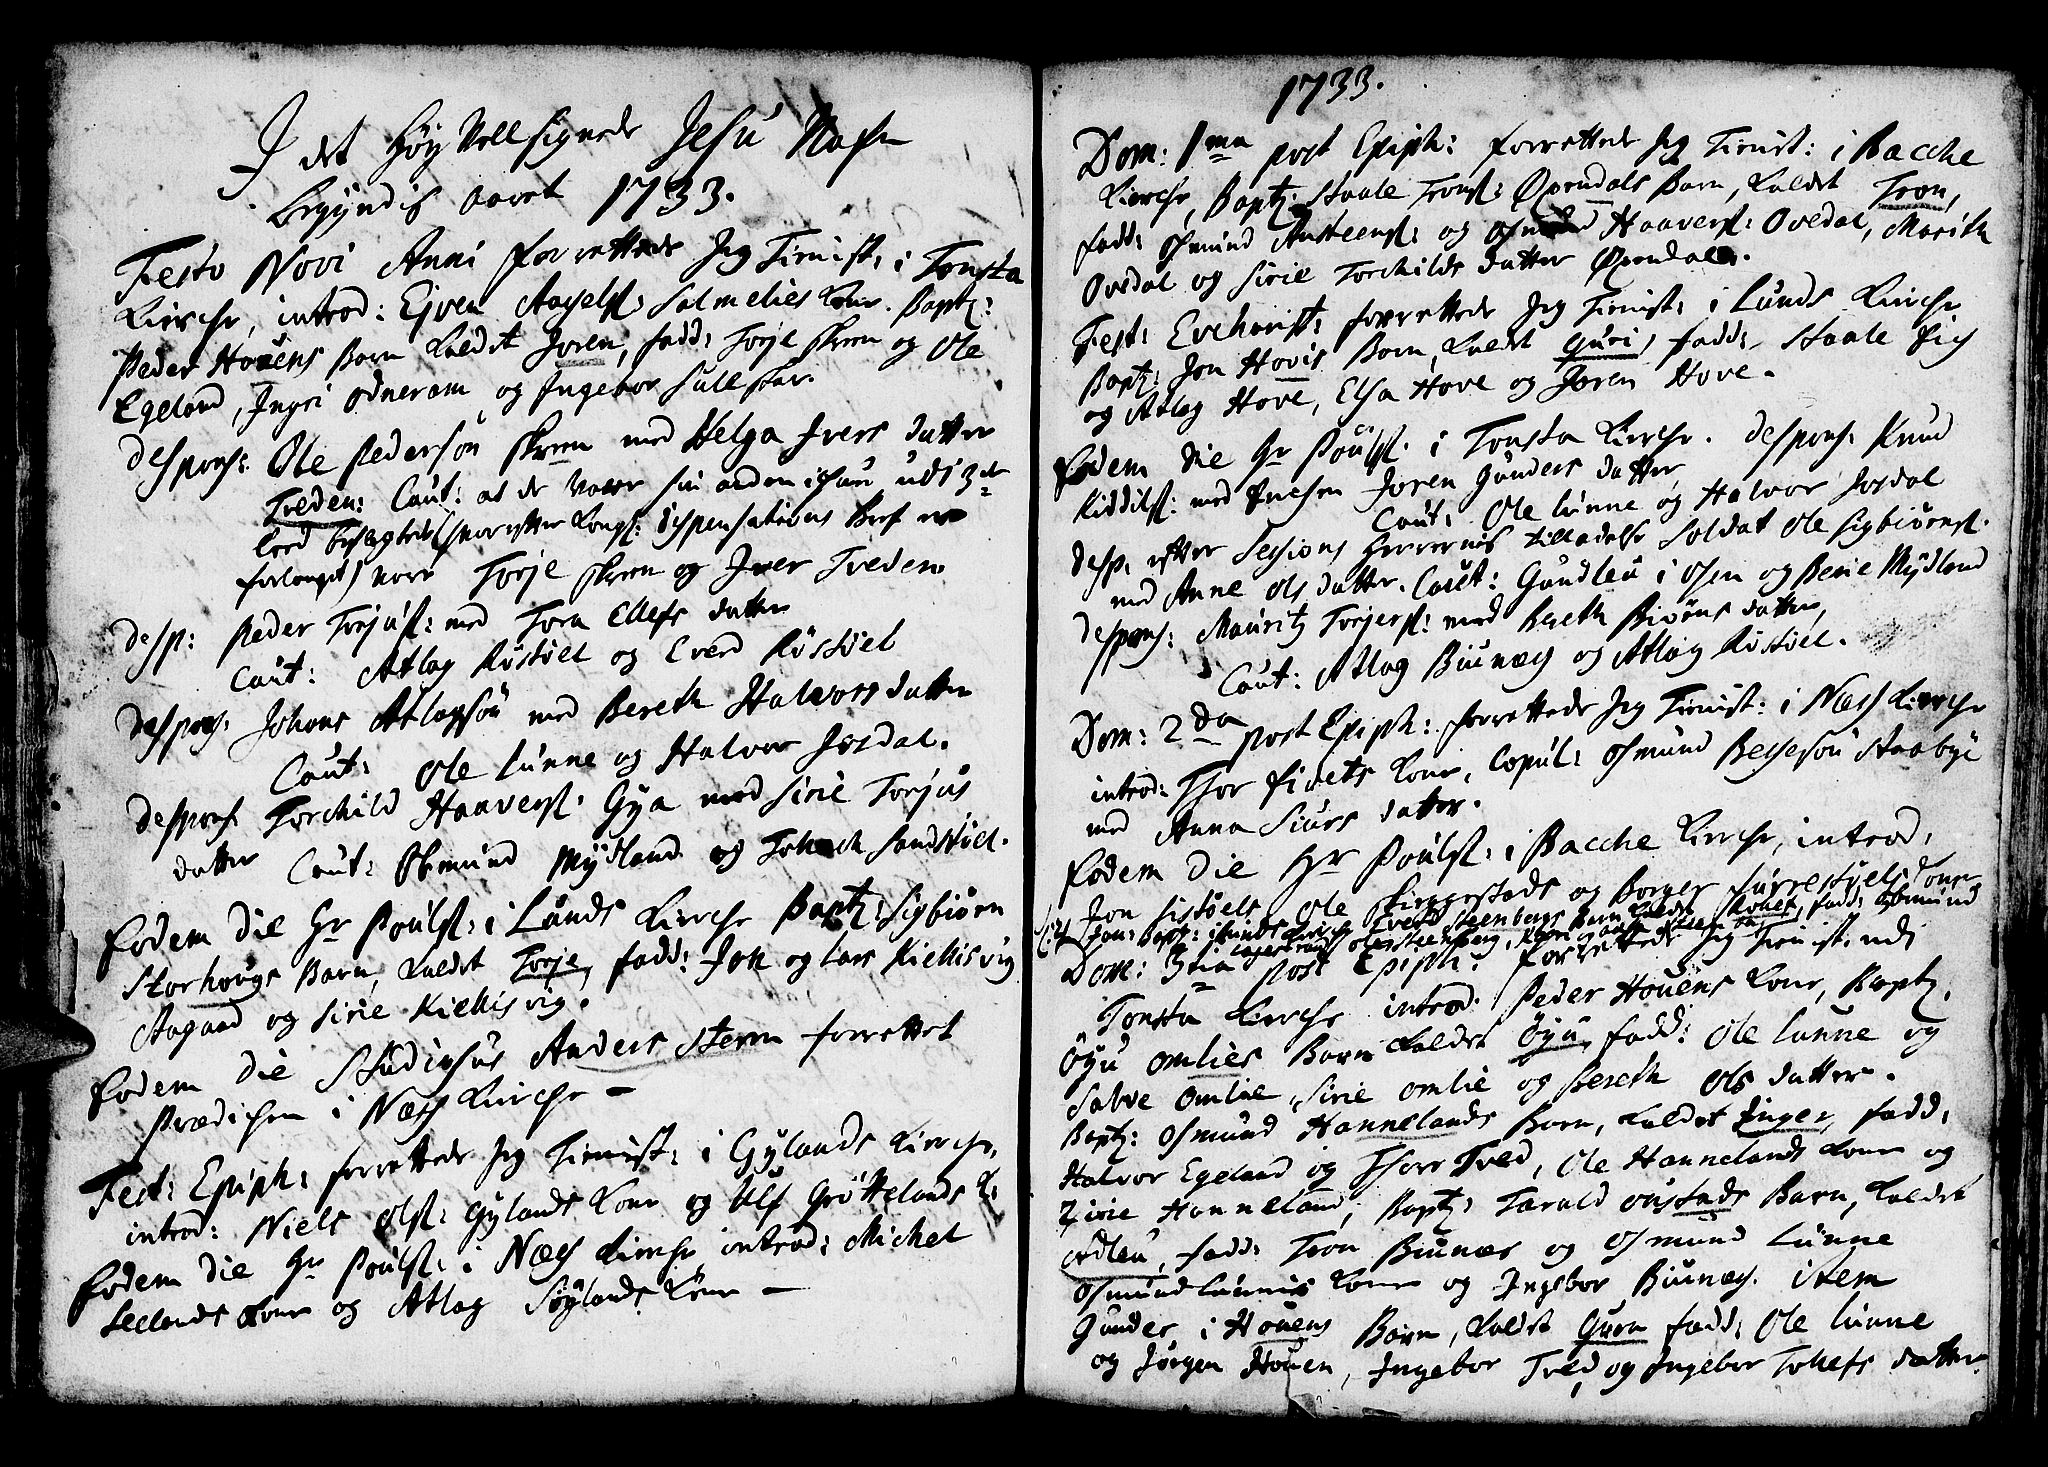 I det Høy Vellsignede Jesu Nafn
begyndis aaret 1733.
Festo Novi Anni forrettede Jeg Tienist: i Tonsta
Kirche, introd: Ejven Axels: Salmelies Kone. Baptz:
Peder Houens Barn Kaldet Joren, fadd: Torje Skreen og Ole
Egeland, Ingri Odneram og Ingebor Sulleskar.
despons: Ole Pedersøn Skreen med Helga Ivers datter
Treden: Caut: at de vare hin anden i udi 3de
leed beslegtede (hvorefter Kongl: dispensations bref er
forlanget) vare Torje Skreen og Iver Treden
desp: Peder Torjusl: med Tora Ellefs datter
Caut: Atlag Røstøel og Everd Røstøel
despons: Johans Atlagsøn med Bereth Halvors datter
Caut: Ole Lunne og Halvor Josdal.
despons: Torchild Haaversl: Gya med Sirie Torjus
datter Caut: Osmund Mydland og Sandstøel.
Eodem die Hr Poulsl: i Lunds Kirche Baptz: Sigbiørn
Storhougs Barn, Kaldet Torje, fadd: Jon og Lars Kiellisvig
Aagaad og Sirie Kiellisvig.
Eodem die Studiosus Anders Steen forrettet
Prædichen i Næss Kirche –
Fest: Epiph: forrettede Jeg Tienist: i Gylands Kirche,
introd: Niels Olsl: Gylands Kone og Ulf Grøttelands K:
Eodem die Hr Poulsl: i Næss Kirche introd: Michel
Seelands Kone og Atlag Søylands Kone –
1733.
Dom: 1ma post Epiph: forrettede Jeg Tienist: i Bacche
Kirche, Baptz: Staale Tronsl: Øpendals Barn, Kaldet Tron,
fadd: Osmund Austeensl: og Osmund Haaversl: Ovedal, Marith
Ovedal og Sirie Torchilds datter Øpendal.
Fest: Evcharist: forrettede Jeg Tienist: i Lunds Kirche
Baptz: Jon Hovis Barn, Kaldet Guri, fadd: Staale Eig
og Atlag Hove, Elsa Hove og Joren Hove.
Eodem die Hr Poulsl: i Tonsta Kirche. despons: Knud
Kiddilsl: med Enchen Joren Gunders datter
Caut: Ole Lunne og Halvor Josdal
desp: efter Sessions Herrernes tilladelse Soldat Ole Sigbiørnsl.
med Anne Ols datter. Caut: Gundleu i Osen og Berie Mydland
despons: Mauritz Torjersl: med Bereth Biørns datter,
Caut: Atlag Biunæs og Atlag Røstøel.
Dom: 2da post Epiph: forrettede Jeg Tienist: i Næss Kirche
introd: Thor Eidets Kone, Copul: Osmund Bessesøn Staabye
med Anna Siurs datter.
Eodem die Hr Poulsl: i Bacche Kirche, introd:
Jon Sistøels Ole Liggestads og Borger Furrestøels Koner
Baptz: i Lunds Kirche Everd Steenbergs Barn Kaldet fadd: Osmund
Ole Steenberg,
Dom: 3tia post Epiph: forrettede Jeg Tienist: udi
Tonsta Kirche introd: Peder Houens Kone, Baptz.
Øyu Omlies Barn Kaldet Øyu, fadd: Ole Lunne og
Salve Omlie, Sirie Omlie og Bereth Ols datter.
Baptz: Osmund Hannelands Barn, Kaldet Inger, fadd:
Halvor Egeland og Thore Tved, Ole Hannelands Kone og
Zirie Hanneland; Baptz: Tarald Oustads Barn, Kaldet
Adleu, fadd: Tron Biunæs og Osmund Lunne
Osmund Lunnis Kone og Ingebor Biunæs. item
Gunder i Houens Barn, Kaldet Guro fadd: Ole Lunne
og Jørgen Houen, Ingebor Tved, og Ingebor Tollefs datter